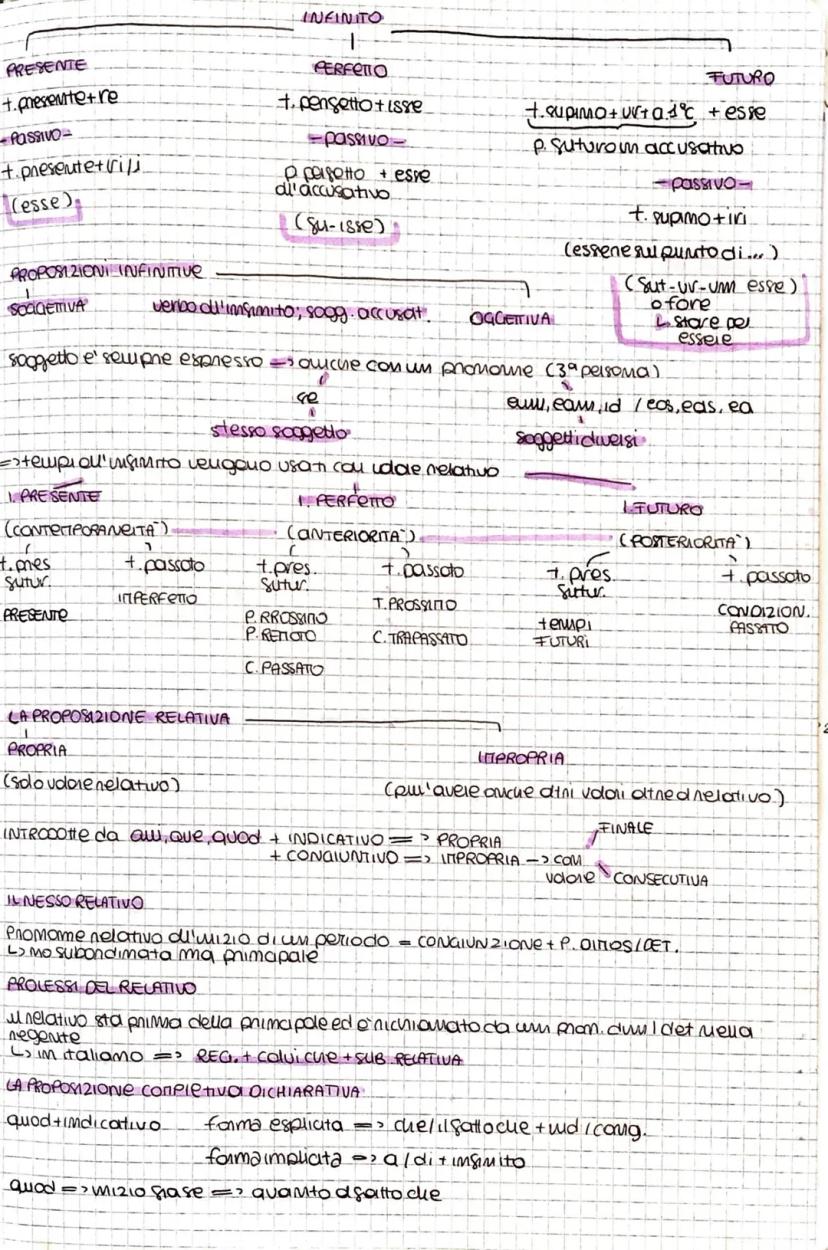 INFINITO
PRESENTE PERFETTO FUTURO
t.presente+re t.perfetto+isse t.supino+ur+a.1ªc + esse
-PASSIVO- -passivo- p.futuro in accusativo
t.presente+ri/i p.perfetto + esse -passivo-
(esse) all'accusativo t.supino+iri
(fu-isse) (essere sul punto di...)
PROPOSIZIONI INFINITIVE (fut-ur-um esse)
SOGGETTIVA verbo all'infinito; sogg. accusat. OGGETTIVA o fore
↳ stare per
essere
soggetto e' sempre espresso => anche con un pronome (3ª persona)
se eum, eam, id / eos, eas, ea
stesso soggetto soggetti diversi
=> tempi all'infinito vengono usati con valore relativo
I. PRESENTE I. PERFETTO I. FUTURO
(CONTEMPORANEITA') (ANTERIORITA') (POSTERIORITA')
t.pres t.passato t.pres. t.passato t.pres. t.passato
futur. futur. futur.
PRESENTE IMPERFETTO P.PROSSIMO T.PROSSIMO tempi CONDIZION.
P.REMOTO C.TRAPASSATO FUTURI PASSATO
C.PASSATO
LA PROPOSIZIONE RELATIVA
PROPRIA IMPROPRIA
(solo valore relativo) (puu' avere anche altri valori oltre al relativo)
INTRODOTTE da qui, que, quod + INDICATIVO => PROPRIA FINALE
+ CONGIUNTIVO => IMPROPRIA -> con
valore CONSECUTIVA
IL NESSO RELATIVO
Pronome relativo all'inizio di un periodo = CONGIUNZIONE + P. DIMOS/DET.
↳ no subordinata ma principale
PROLESSI DEL RELATIVO
il relativo sta prima della principale ed è richiamato da un pron. dim/det nella
regente
↳ in italiano => REG. + colui che + SUB. RELATIVA
LA PROPOSIZIONE COMPLETIVA DICHIARATIVA
quod+indicativo forma esplicita => che/il fatto che + ind/cong.
forma implicita => a/di + infinito
quod => inizio frase => quanto al fatto che